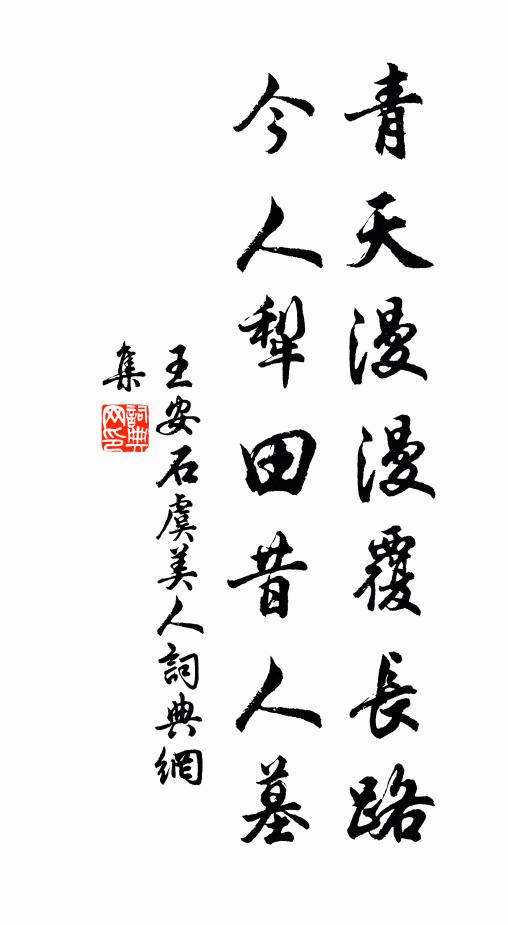 青天漫漫覆長路
今人犁田昔人墓
王安石虞美人詞典網
集
詞典網印